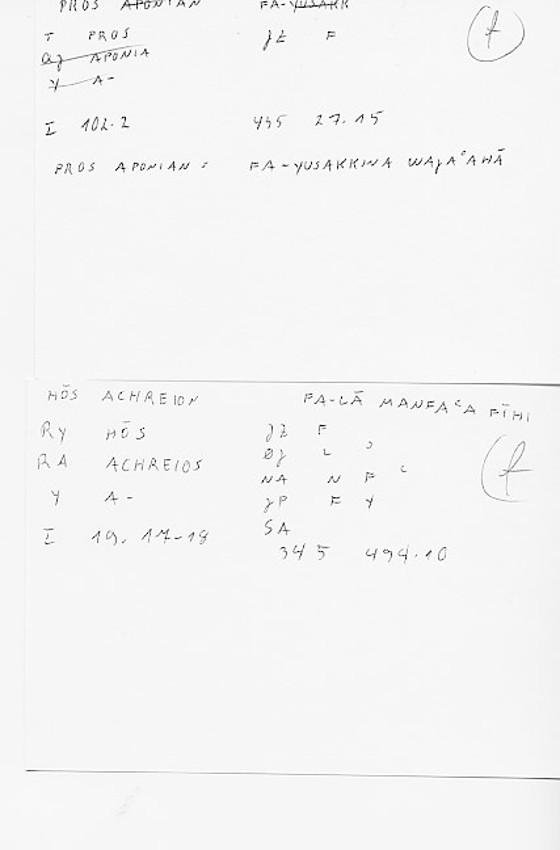 PROS APONIAN FA-YUSAKK
T PROS JZ F
AJ APONIA
Y A-
I 102.2 445 27.15
PROS APONIAN : FA-YUSAKKINA WAJAʿAHĀ
HŌS ACHREION FA-LĀ MANFAʿA FĪHI
RY HŌS JZ F
RA ACHREIOS ØJ L ʾ
NA N F ʿ
Y A- JP F Y
SA
I 19.17-18 345 494.10